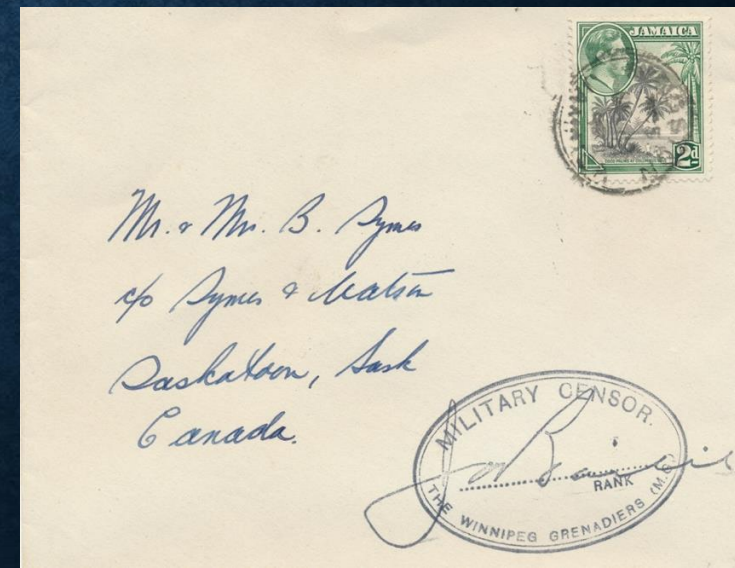 JAMAICA
2d
Mr. & Mrs. B. Symes
c/o Symes & Watson
Saskatoon, Sask
Canada.
MILITARY CENSOR.
RANK
THE WINNIPEG GRENADIERS (M.G)